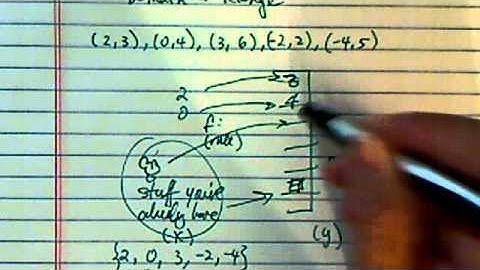 (2,3), (0,4), (3, 6), (-2,2), (-4,5)
2 3
0 4
f:
(rule)
stuff you've
already have
(x) (y)
{2, 0, 3, -2, -4}